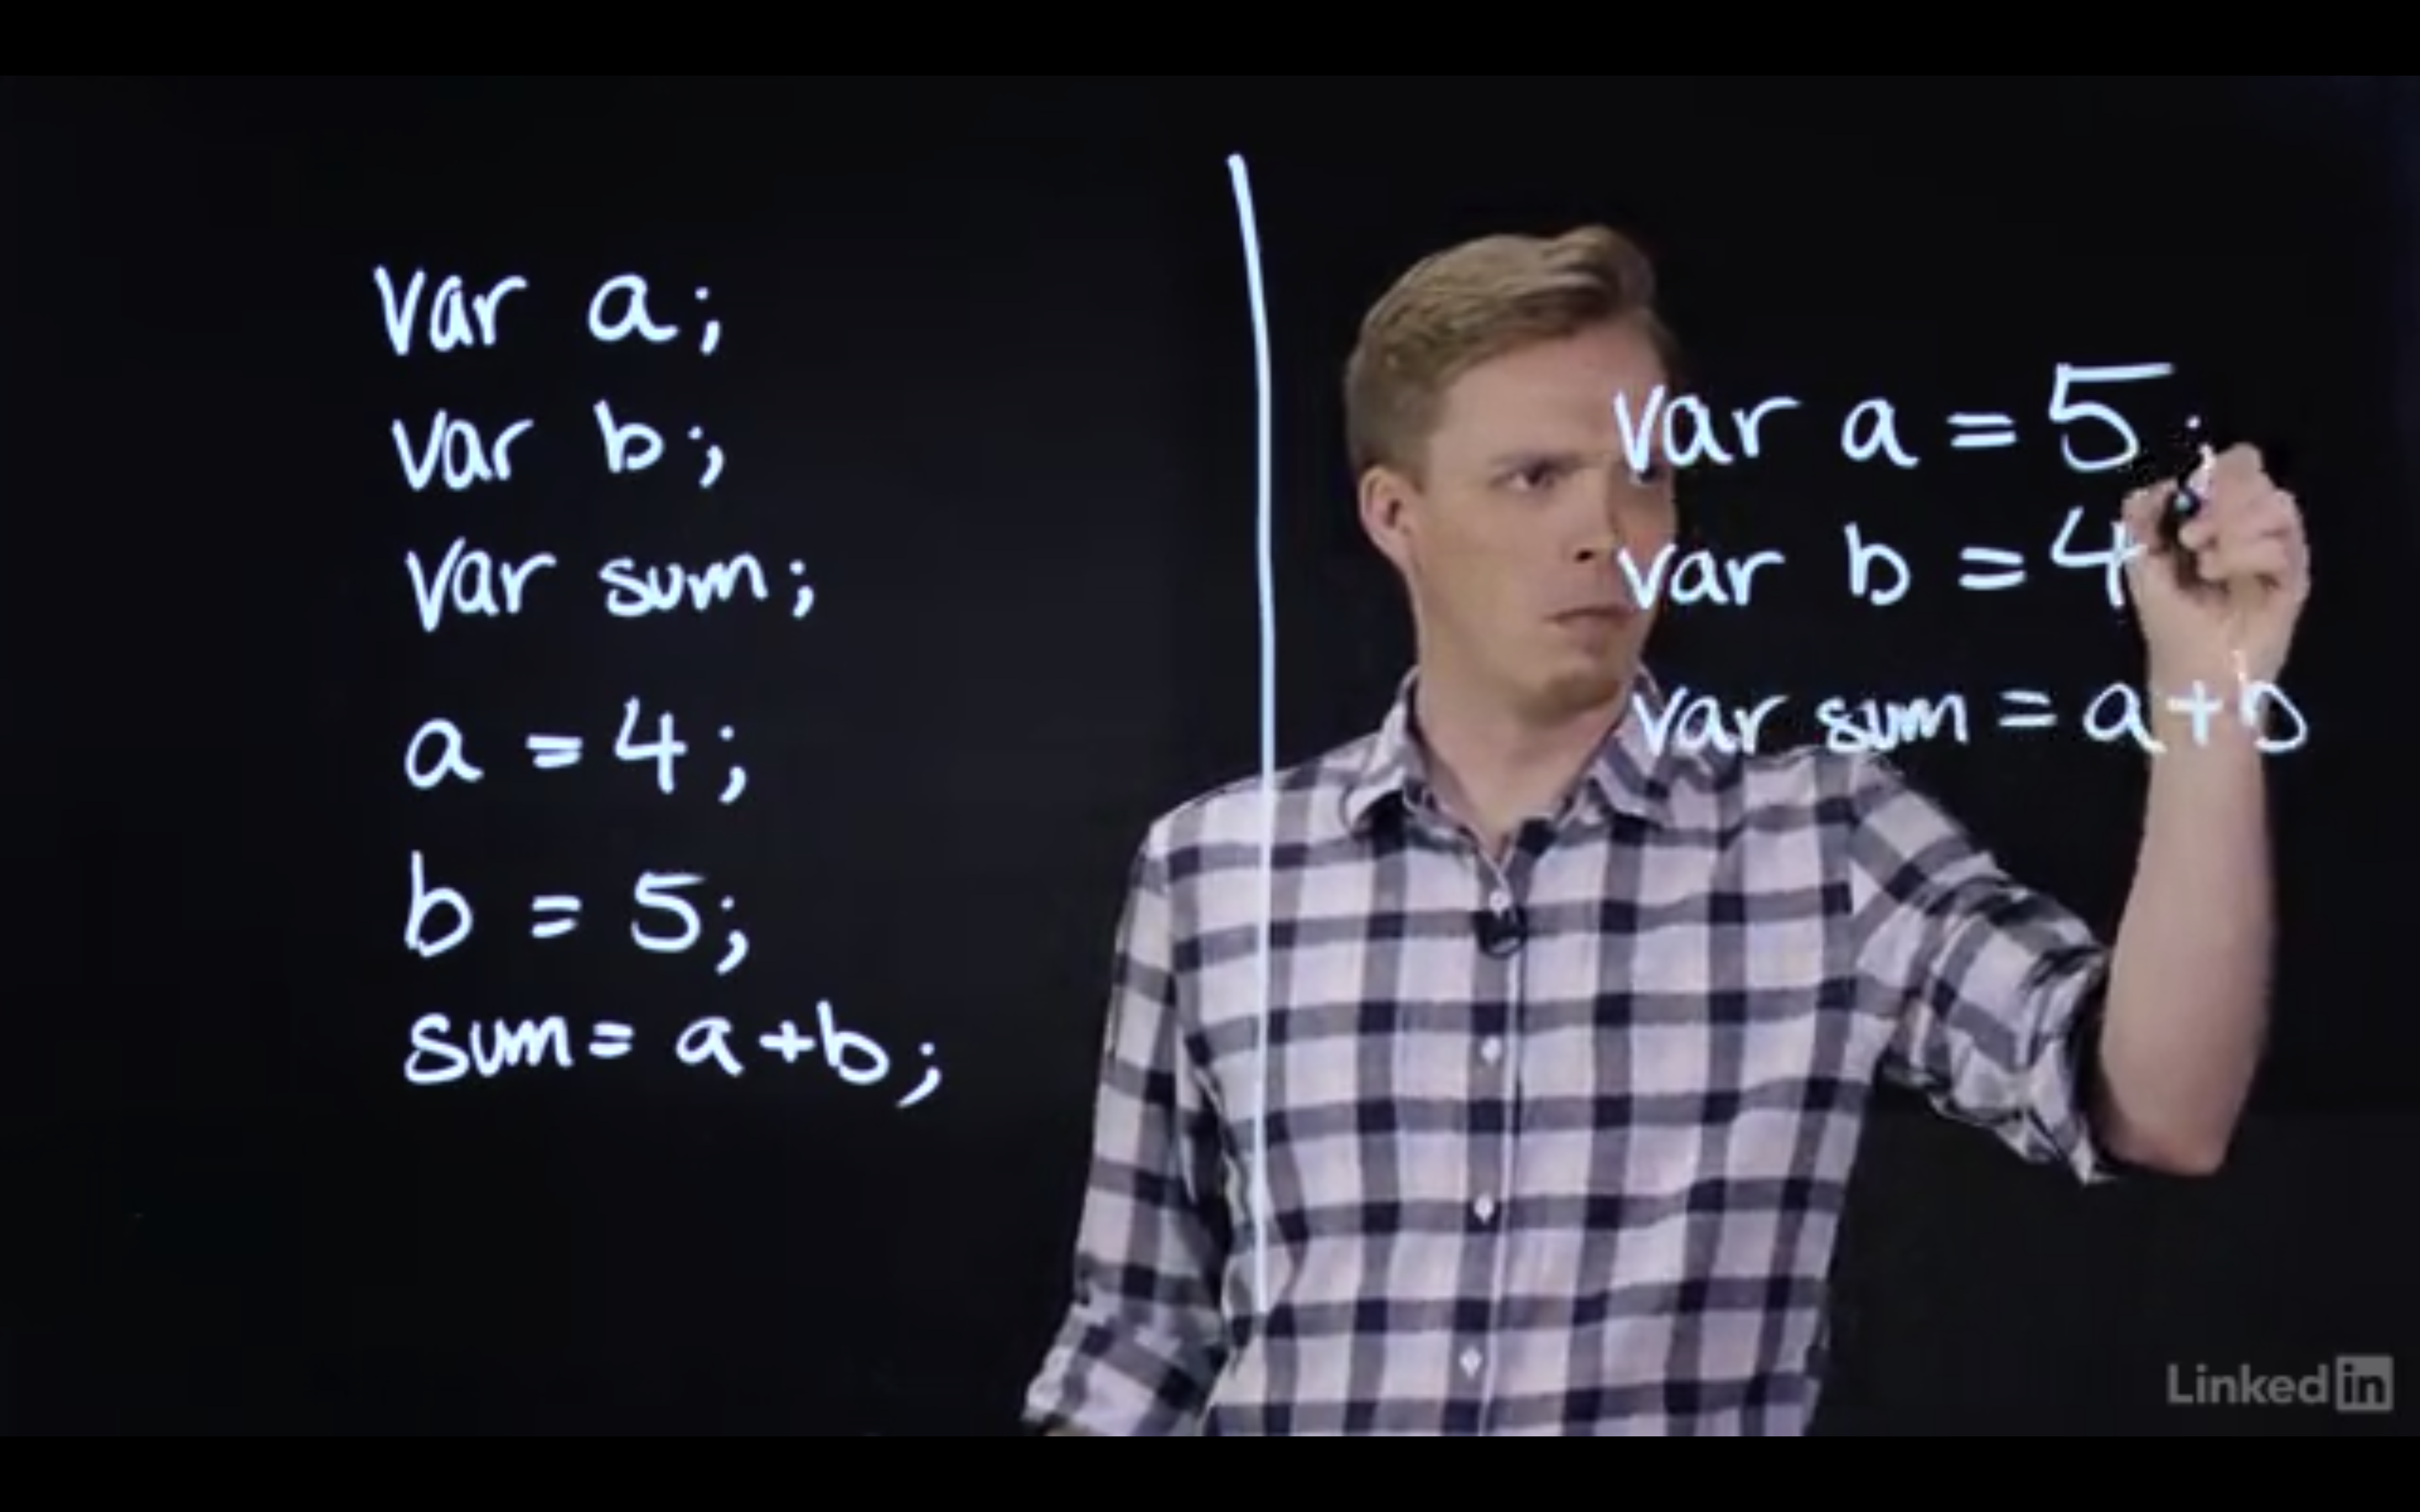 var a;
var b;
var sum;
a = 4;
b = 5;
sum = a+b;
var a = 5;
var b = 4
var sum = a+b
Linked in